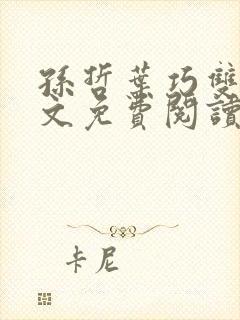 孫哲葉巧雙
文免費閱讀
卡尼